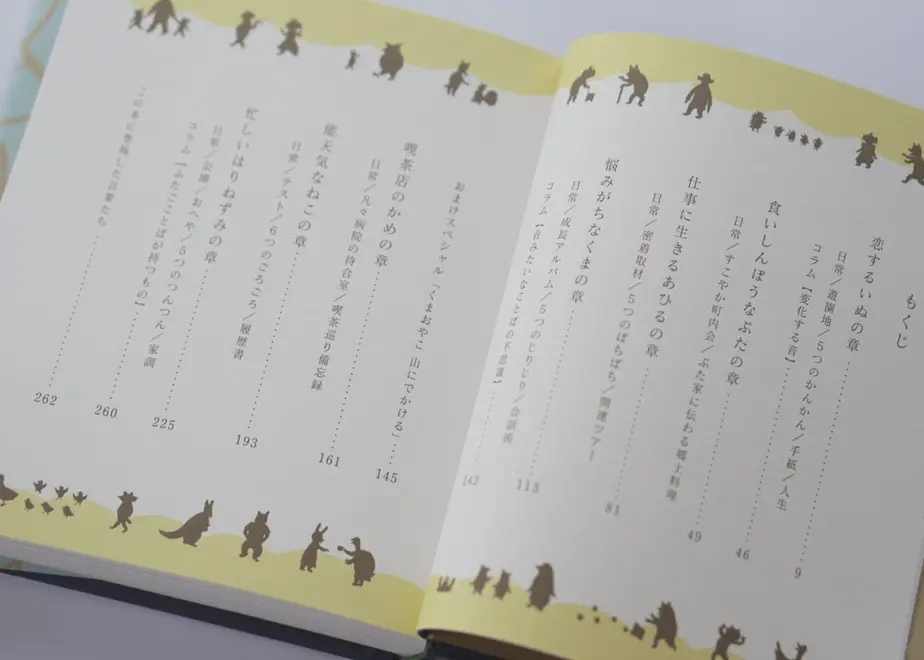 もくじ
恋するいぬの章……9
日常／遊園地／5つのかんかん／手紙／人生
コラム【変化する音】……46
食いしんぼうなぶたの章……49
日常／すこやか町内会／ぶた家に伝わる郷土料理
仕事に生きるあひるの章……81
日常／密着取材／5つのぱちぱち／開運ツアー
悩みがちなくまの章……113
日常／成長アルバム／5つのじりじり／会話術
コラム【音みたいなことばの不思議】……143
おまけスペシャル「くまおやこ 山にでかける」……145
喫茶店のかめの章……161
日常／凡々病院の待合室／喫茶巡り備忘録
能天気なねこの章……193
日常／テスト／6つのごろごろ／履歴書
忙しいはりねずみの章……225
日常／おへや／5つのつんつん／家訓
コラム【ふたごことばが持つもの】……260
この本に登場した言葉たち……262